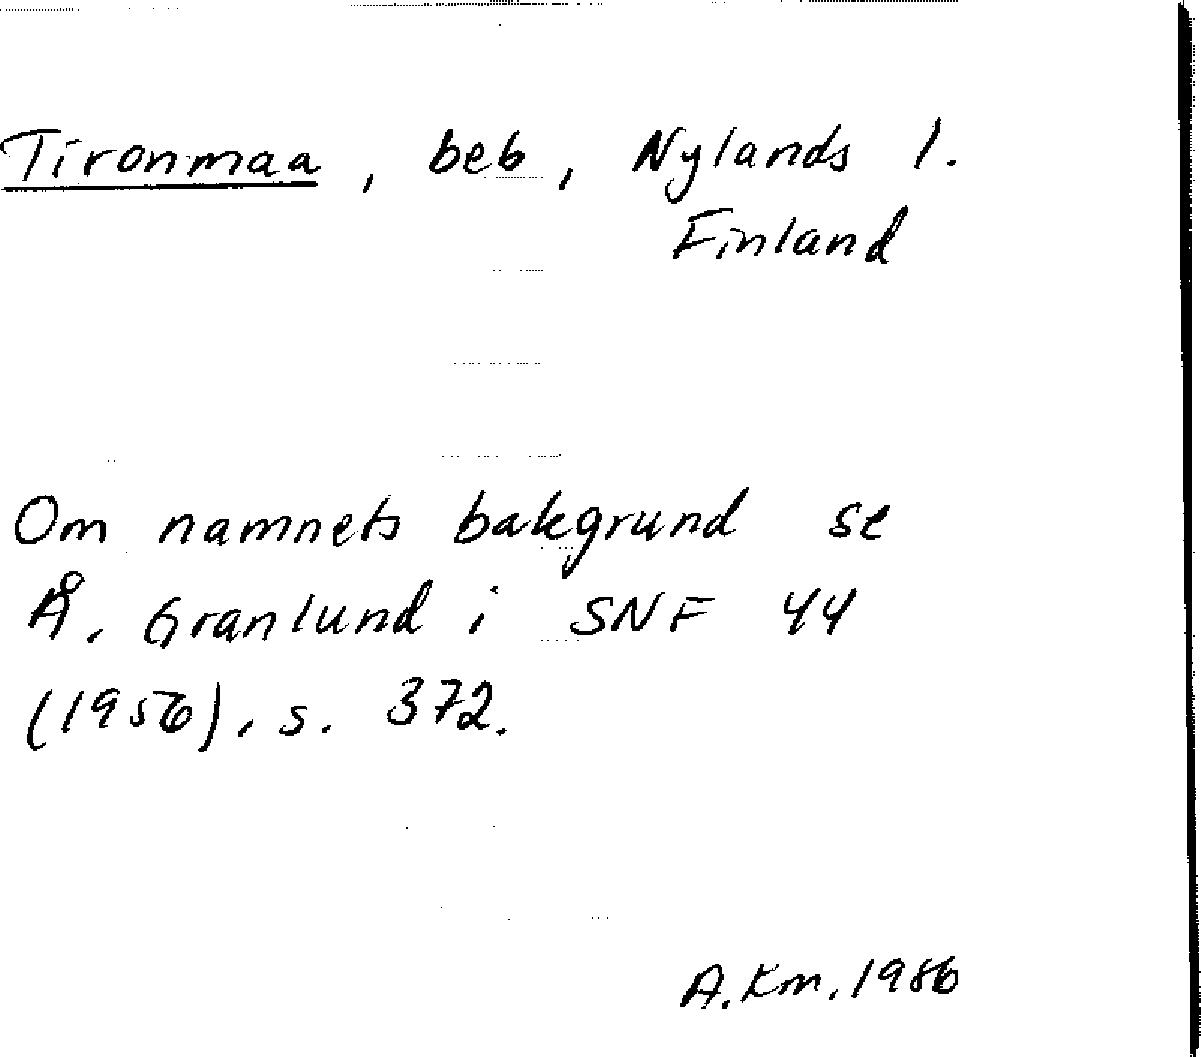 Tironmaa, beb, Nylands l.
Finland
Om namnets bakgrund se
Å. Granlund i SNF 44
(1956), s. 372.
A.Km. 1986